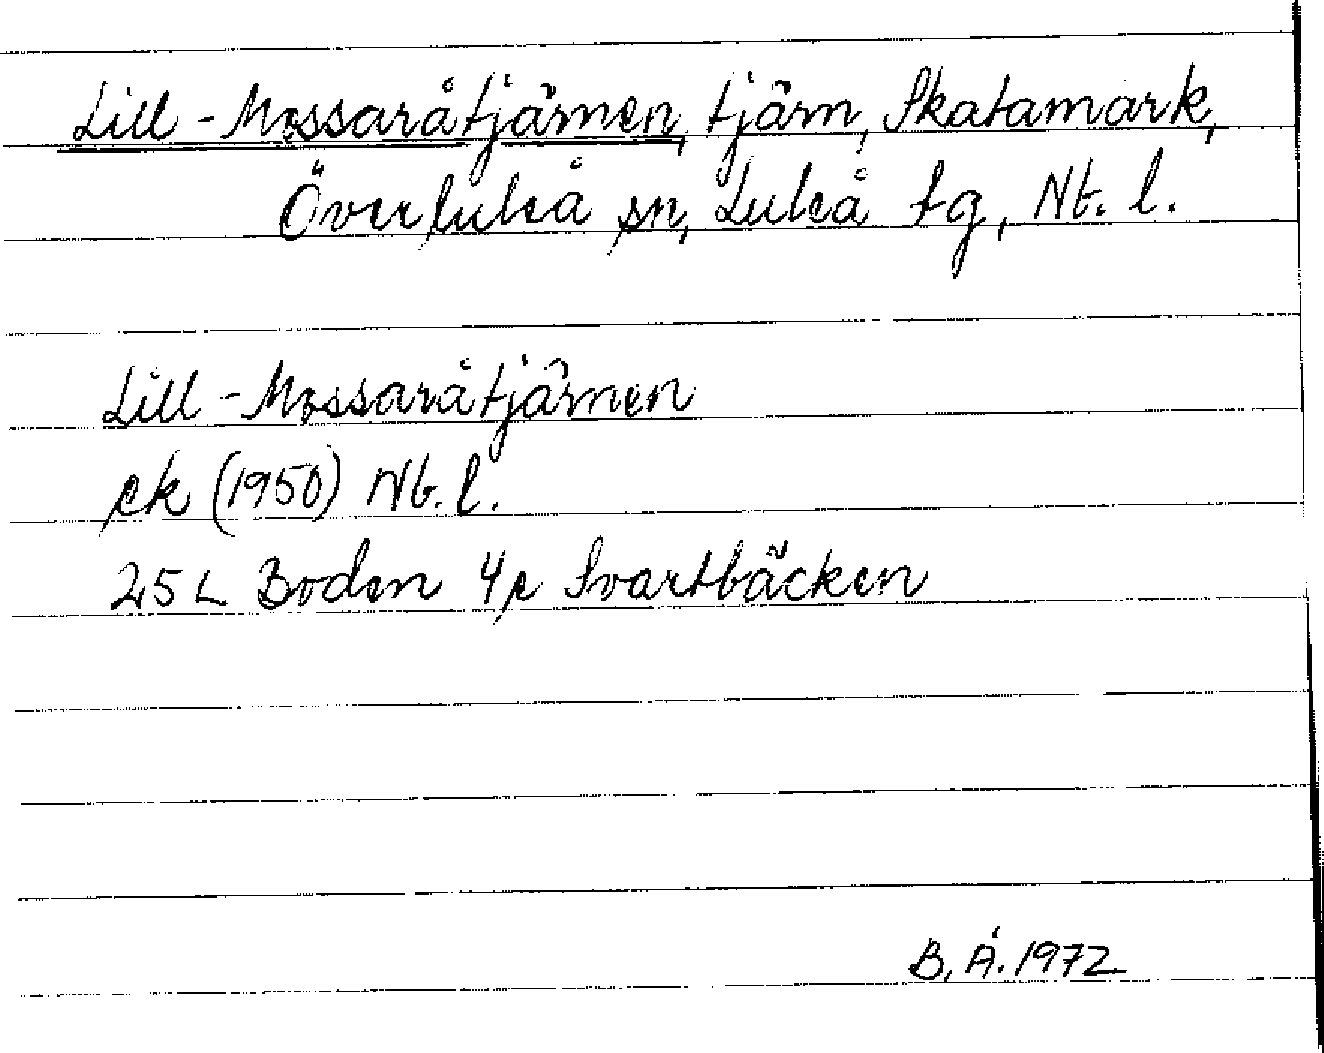 Lill-Mossaråtjärnen, tjärn, Skatamark,
Överluleå sn, Luleå tg, Nb. l.
Lill-Mossaråtjärnen
ek (1950) Nb. l.
25 L Boden 4 e Svartbäcken
B. Å. 1972